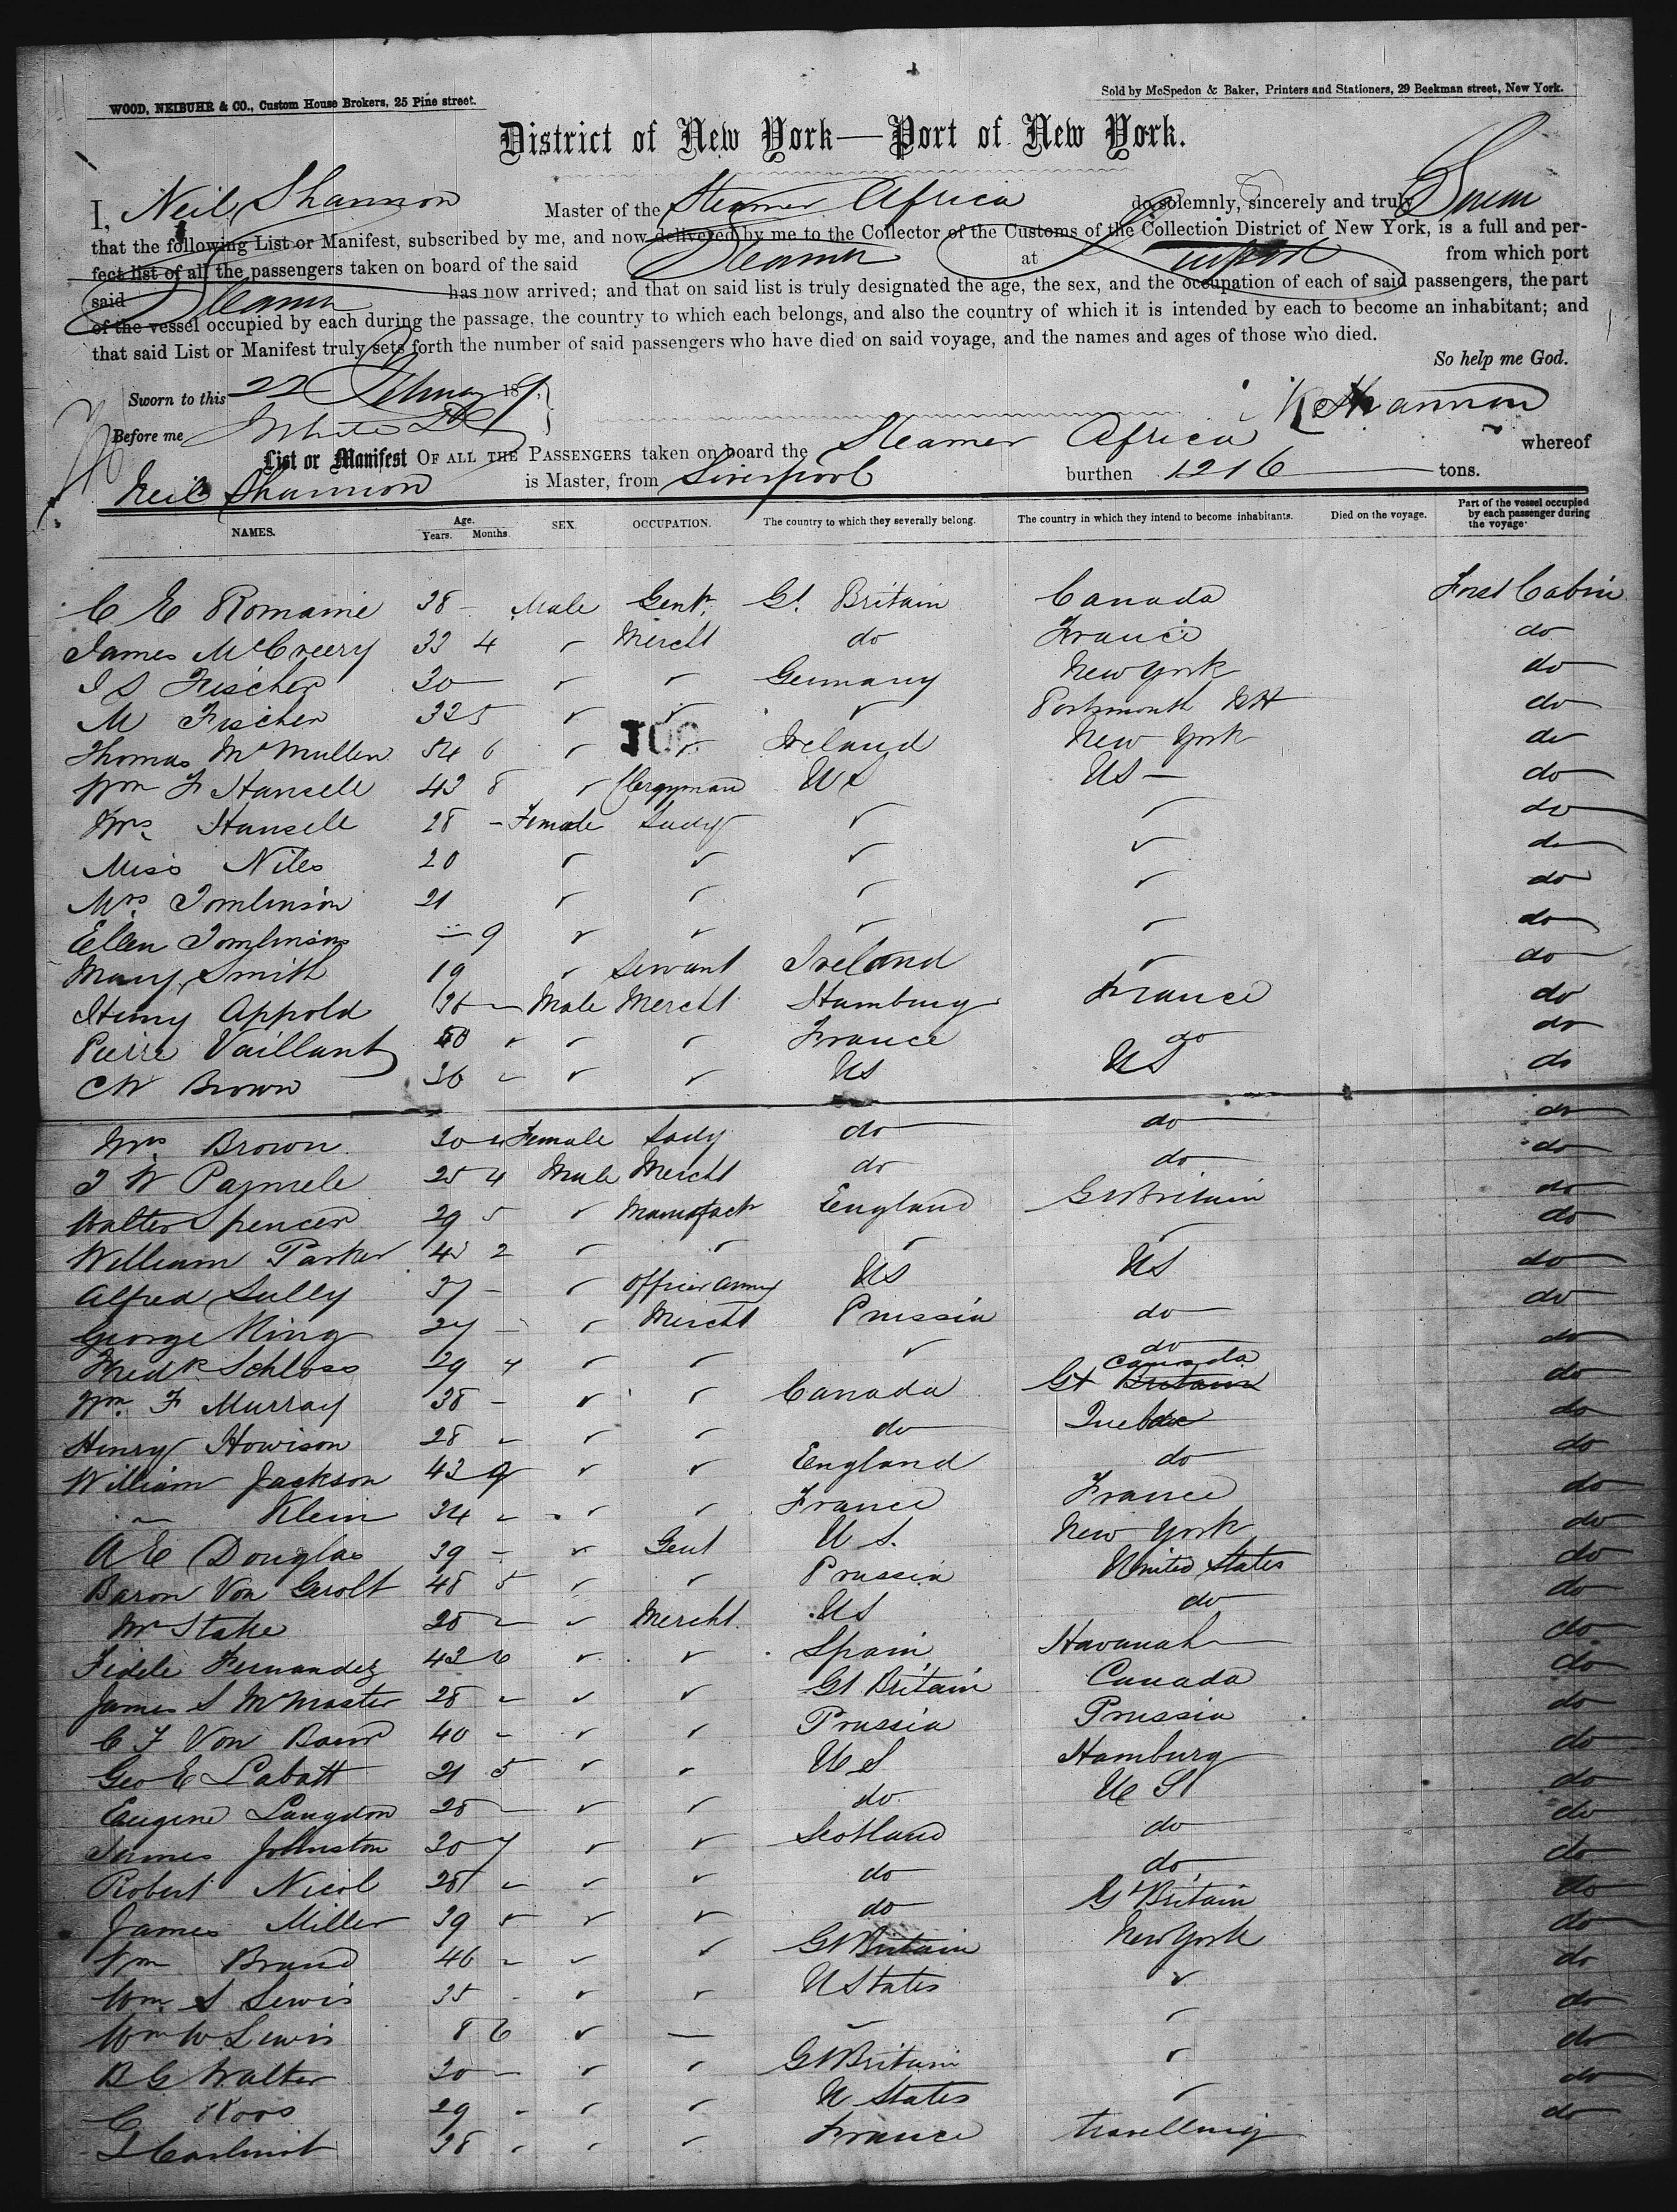 WOOD, NEIBUHR & CO., Custom House Brokers, 25 Pine street.
Sold by McSpedon & Baker, Printers and Stationers, 29 Beekman street, New York.
District of New York—Port of New York.
I, Neil Shannon Master of the Steamer Africa do solemnly, sincerely and truly Swear
that the following List or Manifest, subscribed by me, and now delivered by me to the Collector of the Customs of the Collection District of New York, is a full and per-
fect list of all the passengers taken on board of the said Steamer at Liverpool from which port
said Steamer has now arrived; and that on said list is truly designated the age, the sex, and the occupation of each of said passengers, the part
of the vessel occupied by each during the passage, the country to which each belongs, and also the country of which it is intended by each to become an inhabitant; and
that said List or Manifest truly sets forth the number of said passengers who have died on said voyage, and the names and ages of those who died.
So help me God.
Sworn to this 22 February 18
N Shannon
Before me
List or Manifest OF ALL THE PASSENGERS taken on board the Steamer Africa whereof
Neil Shannon is Master, from Liverpool burthen 1216 tons.
NAMES. Age. Years. Months. SEX. OCCUPATION. The country to which they severally belong. The country in which they intend to become inhabitants. Died on the voyage. Part of the vessel occupied by each passenger during the voyage
C E Romaine 38 - Male Gent. Gt. Britain Canada First Cabin
James McCreery 33 4 " Mercht do France do
I S Fischer 30 — " " Germany New York do
M Fischer 32 5 " " " Portsmouth NH do
Thomas McMullen 54 6 " " Ireland New York do
Wm F Hansell 43 8 " Clergyman US US — do
Mrs Hansell 28 - Female Lady " " do
Miss Niles 20 " " " " do
Mrs. Tomlinson 21 " " " " do
Ellen Tomlinson — 9 " " " " do
Mary Smith 19 " Servant Ireland " do
Henry Appold Male Mercht Hamburg France do
Pierre Vaillant " " " France do do
CW Brown 36 - " " US US do
Mrs Brown 30 4 Female Lady do do do
25 4 Male Mercht do do do
Walter Spencer 29 5 " Manufactr England Gt Britain do
William Parker 43 2 " " " " do
Alfred Sully 37 - " Officer army US US do
George King 27 - " Mercht Prussia do do
Fredk Schloss 29 4 " " " do do
Wm. F Murray 38 - " " Canada Gt Britain Canada do
Henry Howison 28 - " " do Quebec do
William Jackson 43 9 " " England do do
— Klein 34 - " " France France do
A E Douglas 39 - " Gent U S. New York do
Baron Von Gerolt 48 5 " " Prussia United States do
Mr Stake 28 - " Mercht. US do do
Fidele Fernandez 43 6 " " Spain Havanah do
James S McMaster 28 - " " Gt Britain Canada do
C F Von Baur 40 - " " Prussia Prussia do
Geo E Labatt 21 5 " " U S Hamburg do
Eugene Langdon 28 - " " do. U S do
James Johnston 30 7 " " Scotland do do
Robert Nicol 28 - " " do do do
James Miller 39 5 " " do Gt Britain do
Wm Brand 46 - " " Gt Britain New York do
Wm S Lewis 35 - " " U States " do
Wm W Lewis 8 6 " — " " do
B G Walter 30 - " " Gt Britain " do
C Koos 29 - " " U States " do
38 - " " France travelling do